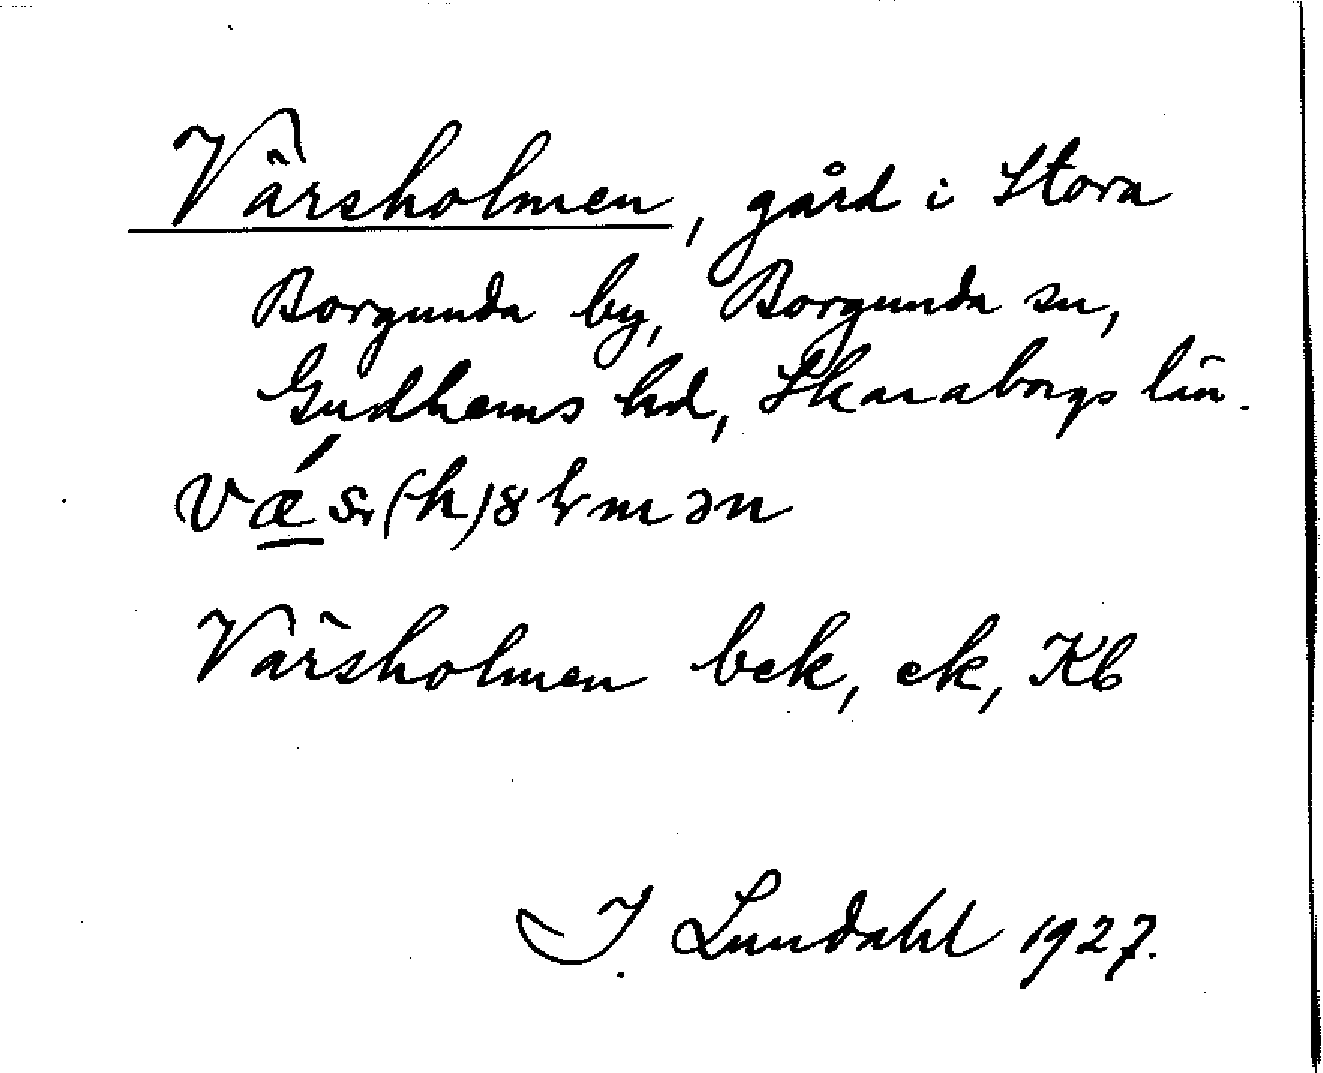 Värsholmen, gård i Stora
Borgunda by, Borgunda sn,
Gudhems hd, Skaraborgs län.
Värsholmen bek, ek, Kb
I. Lundahl 1927.